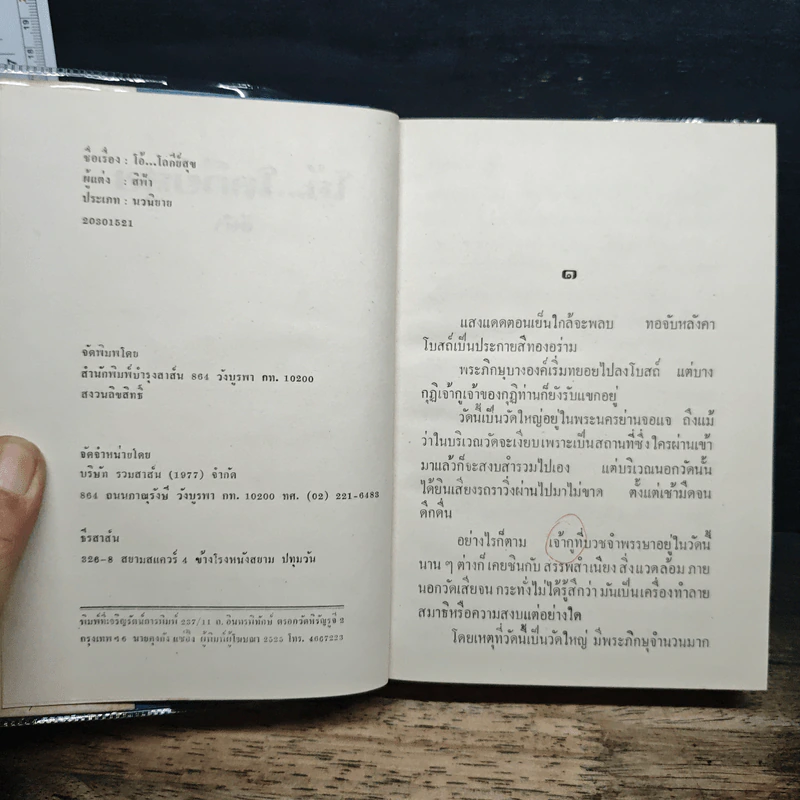 ชื่อเรื่อง : โอ้...โลกียสุข
ผู้แต่ง : สีฟ้า
ประเภท : นวนิยาย
20301521
จัดพิมพ์โดย
สำนักพิมพ์บำรุงสาส์น 864 วังบูรพา กท. 10200
สงวนลิขสิทธิ์
จัดจำหน่ายโดย
บริษัท รวมสาส์น (1977) จำกัด
864 ถนนภาณุรังษี วังบูรพา กท. 10200 ทศ. (02) 221-6483
ธีรสาส์น
326-8 สยามสแควร์ 4 ข้างโรงหนังสยาม ปทุมวัน
พิมพ์ที่เจริญรัตน์การพิมพ์ 257/11 ถ. อินทรพิทักษ์ ตรอกวัดหิรัญรูจี 2
กรุงเทพฯ 6 นายคุงกัง แซ่อึง ผู้พิมพ์ผู้โฆษณา 2525 โทร. 4667223
๑
แสงแดดตอนเย็นใกล้จะพลบ ทอจับหลังคา
โบสถ์เป็นประกายสีทองอร่าม
พระภิกษุบางองค์เริ่มทยอยไปลงโบสถ์ แต่บาง
กุฏิเจ้ากูเจ้าของกุฏิท่านก็ยังรับแขกอยู่
วัดนี้เป็นวัดใหญ่อยู่ในพระนครย่านจอแจ ถึงแม้
ว่าในบริเวณวัดจะเงียบเพราะเป็นสถานที่ซึ่งใครผ่านเข้า
มาแล้วก็จะสงบสำรวมไปเอง แต่บริเวณนอกวัดนั้น
ได้ยินเสียงรถราวิ่งผ่านไปมาไม่ขาด ตั้งแต่เช้ามืดจน
ดึกดื่น
อย่างไรก็ตาม เจ้ากูที่บวชจำพรรษาอยู่ในวัดนี้
นาน ๆ ต่างก็เคยชินกับ สรรพสำเนียง สิ่งแวดล้อม ภาย
นอกวัดเสียจน กระทั่งไม่ได้รู้สึกว่า มันเป็นเครื่องทำลาย
สมาธิหรือความสงบแต่อย่างใด
โดยเหตุที่วัดนี้เป็นวัดใหญ่ มีพระภิกษุจำนวนมาก